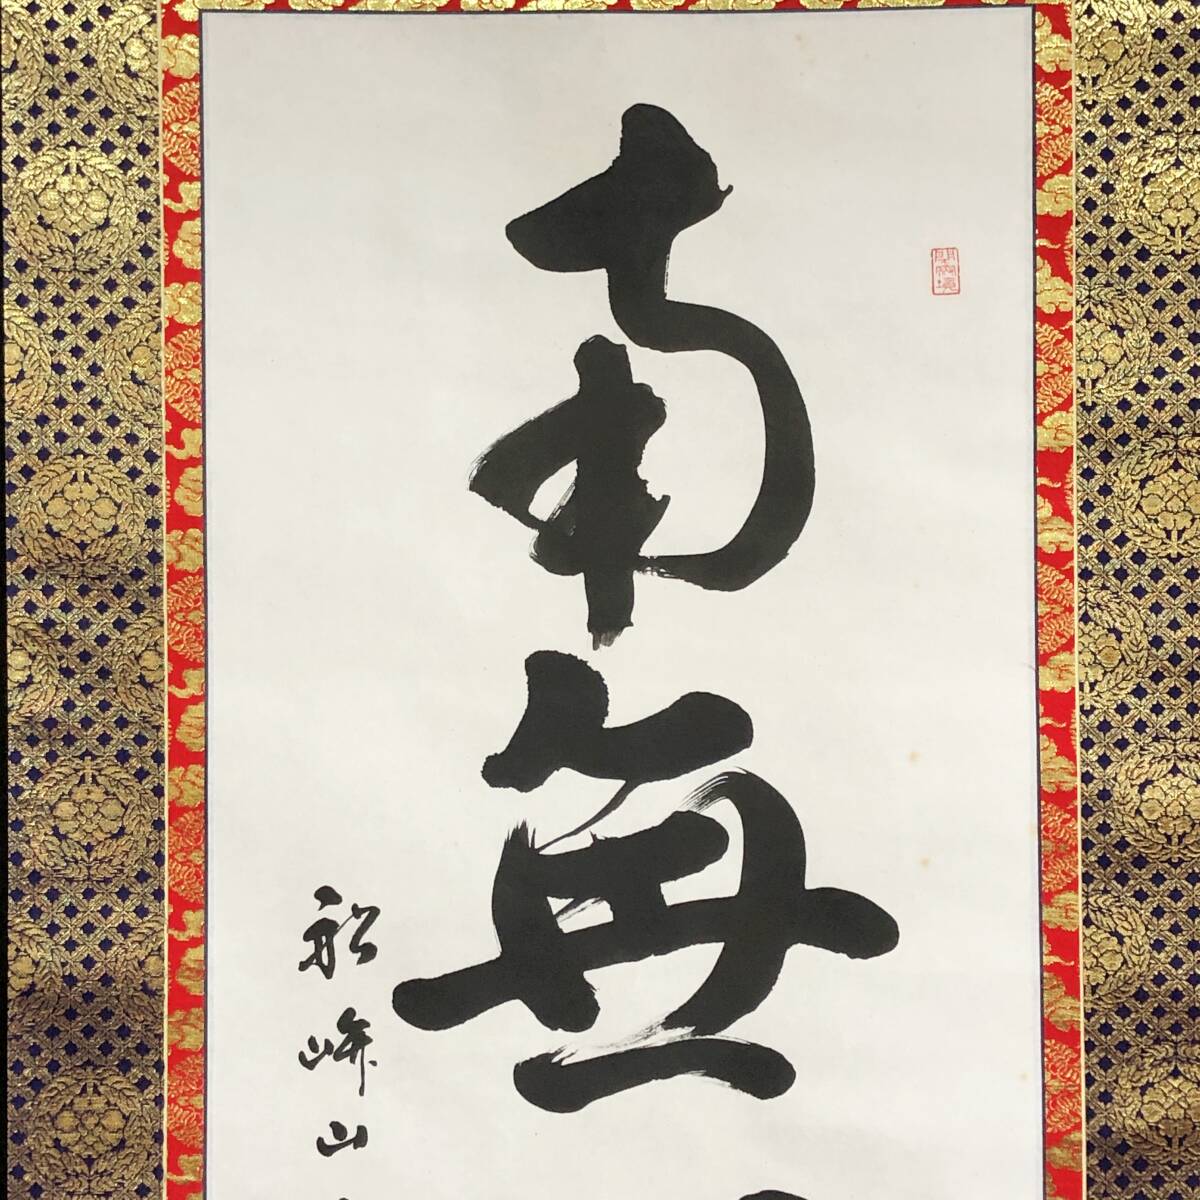 南無
船峰山